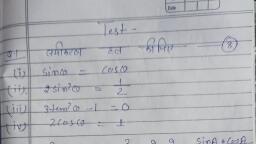 Date
Test-
Q1 समीकरण हल कीजिए (8)
(i) sinθ = cosθ
(ii) 2sin²θ = 1/2
(iii) 3tan²θ - 1 = 0
(iv) 2cosθ = 1